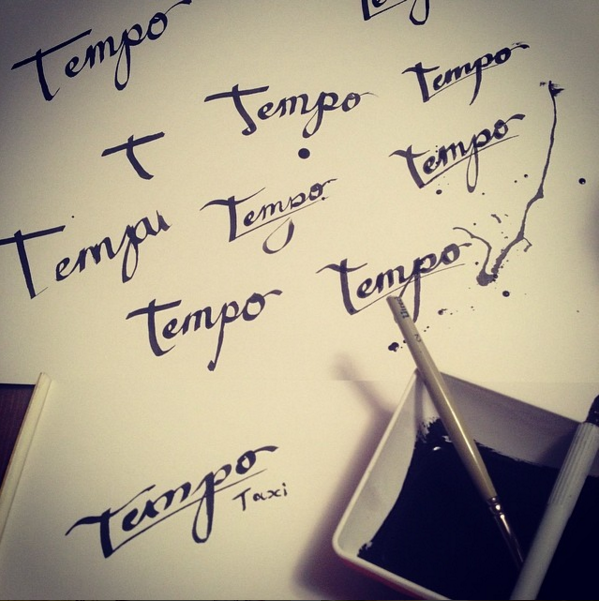 Tempo
Tempo
Tempo
T
Tempo
Tempo
Tempo
Tempo
Tempo
Taxi